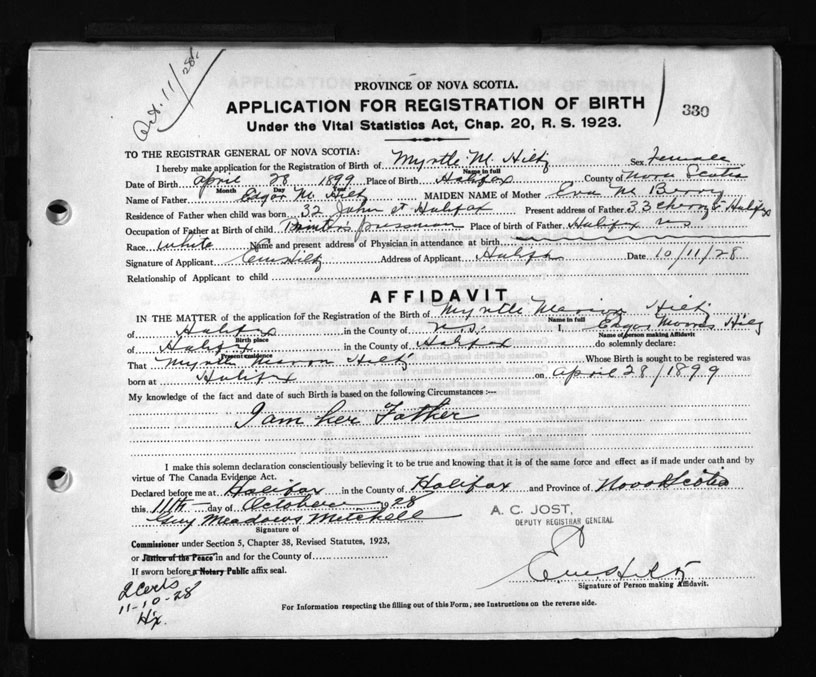 Oct. 11/28.
PROVINCE OF NOVA SCOTIA.
APPLICATION FOR REGISTRATION OF BIRTH
330
Under the Vital Statistics Act, Chap. 20, R. S. 1923.
TO THE REGISTRAR GENERAL OF NOVA SCOTIA:
I hereby make application for the Registration of Birth of Myrtle M. Hiltz Sex Female
Name in full
Date of Birth April 28 1899 Place of Birth Halifax County of Nova Scotia
Month Day Year
Name of Father Edgar M. Hiltz MAIDEN NAME of Mother Eva M Berry
Residence of Father when child was born 32 John st Halifax Present address of Father 33 Cherry St Halifax
Occupation of Father at Birth of child pressman Place of birth of Father Halifax ns
Race White Name and present address of Physician in attendance at birth
Signature of Applicant EM Hiltz Address of Applicant Halifax Date 10/11/28
Relationship of Applicant to child
AFFIDAVIT
IN THE MATTER of the application for the Registration of the Birth of Myrtle Marion Hiltz
Name in full
of Halifax in the County of N.S. I, Edgar Morris Hiltz
Birth place Name of person making Affidavit
of Halifax in the County of Halifax do solemnly declare:
Present residence
That Myrtle Marion Hiltz Whose Birth is sought to be registered was
born at Halifax on April 28/1899
My knowledge of the fact and date of such Birth is based on the following Circumstances :--
I am her Father
I make this solemn declaration conscientiously believing it to be true and knowing that it is of the same force and effect as if made under oath and by
virtue of The Canada Evidence Act.
Declared before me at Halifax in the County of Halifax and Province of Nova Scotia
this 11th day of October 1928
Guy Meadows Mitchell
A. C. JOST,
DEPUTY REGISTRAR GENERAL
Signature of
Commissioner under Section 5, Chapter 38, Revised Statutes, 1923,
or Justice of the Peace in and for the County of
If sworn before a Notary Public affix seal.
EM Hiltz
Signature of Person making Affidavit.
2 Certs
11-10-28
Hx.
For Information respecting the filling out of this Form, see Instructions on the reverse side.